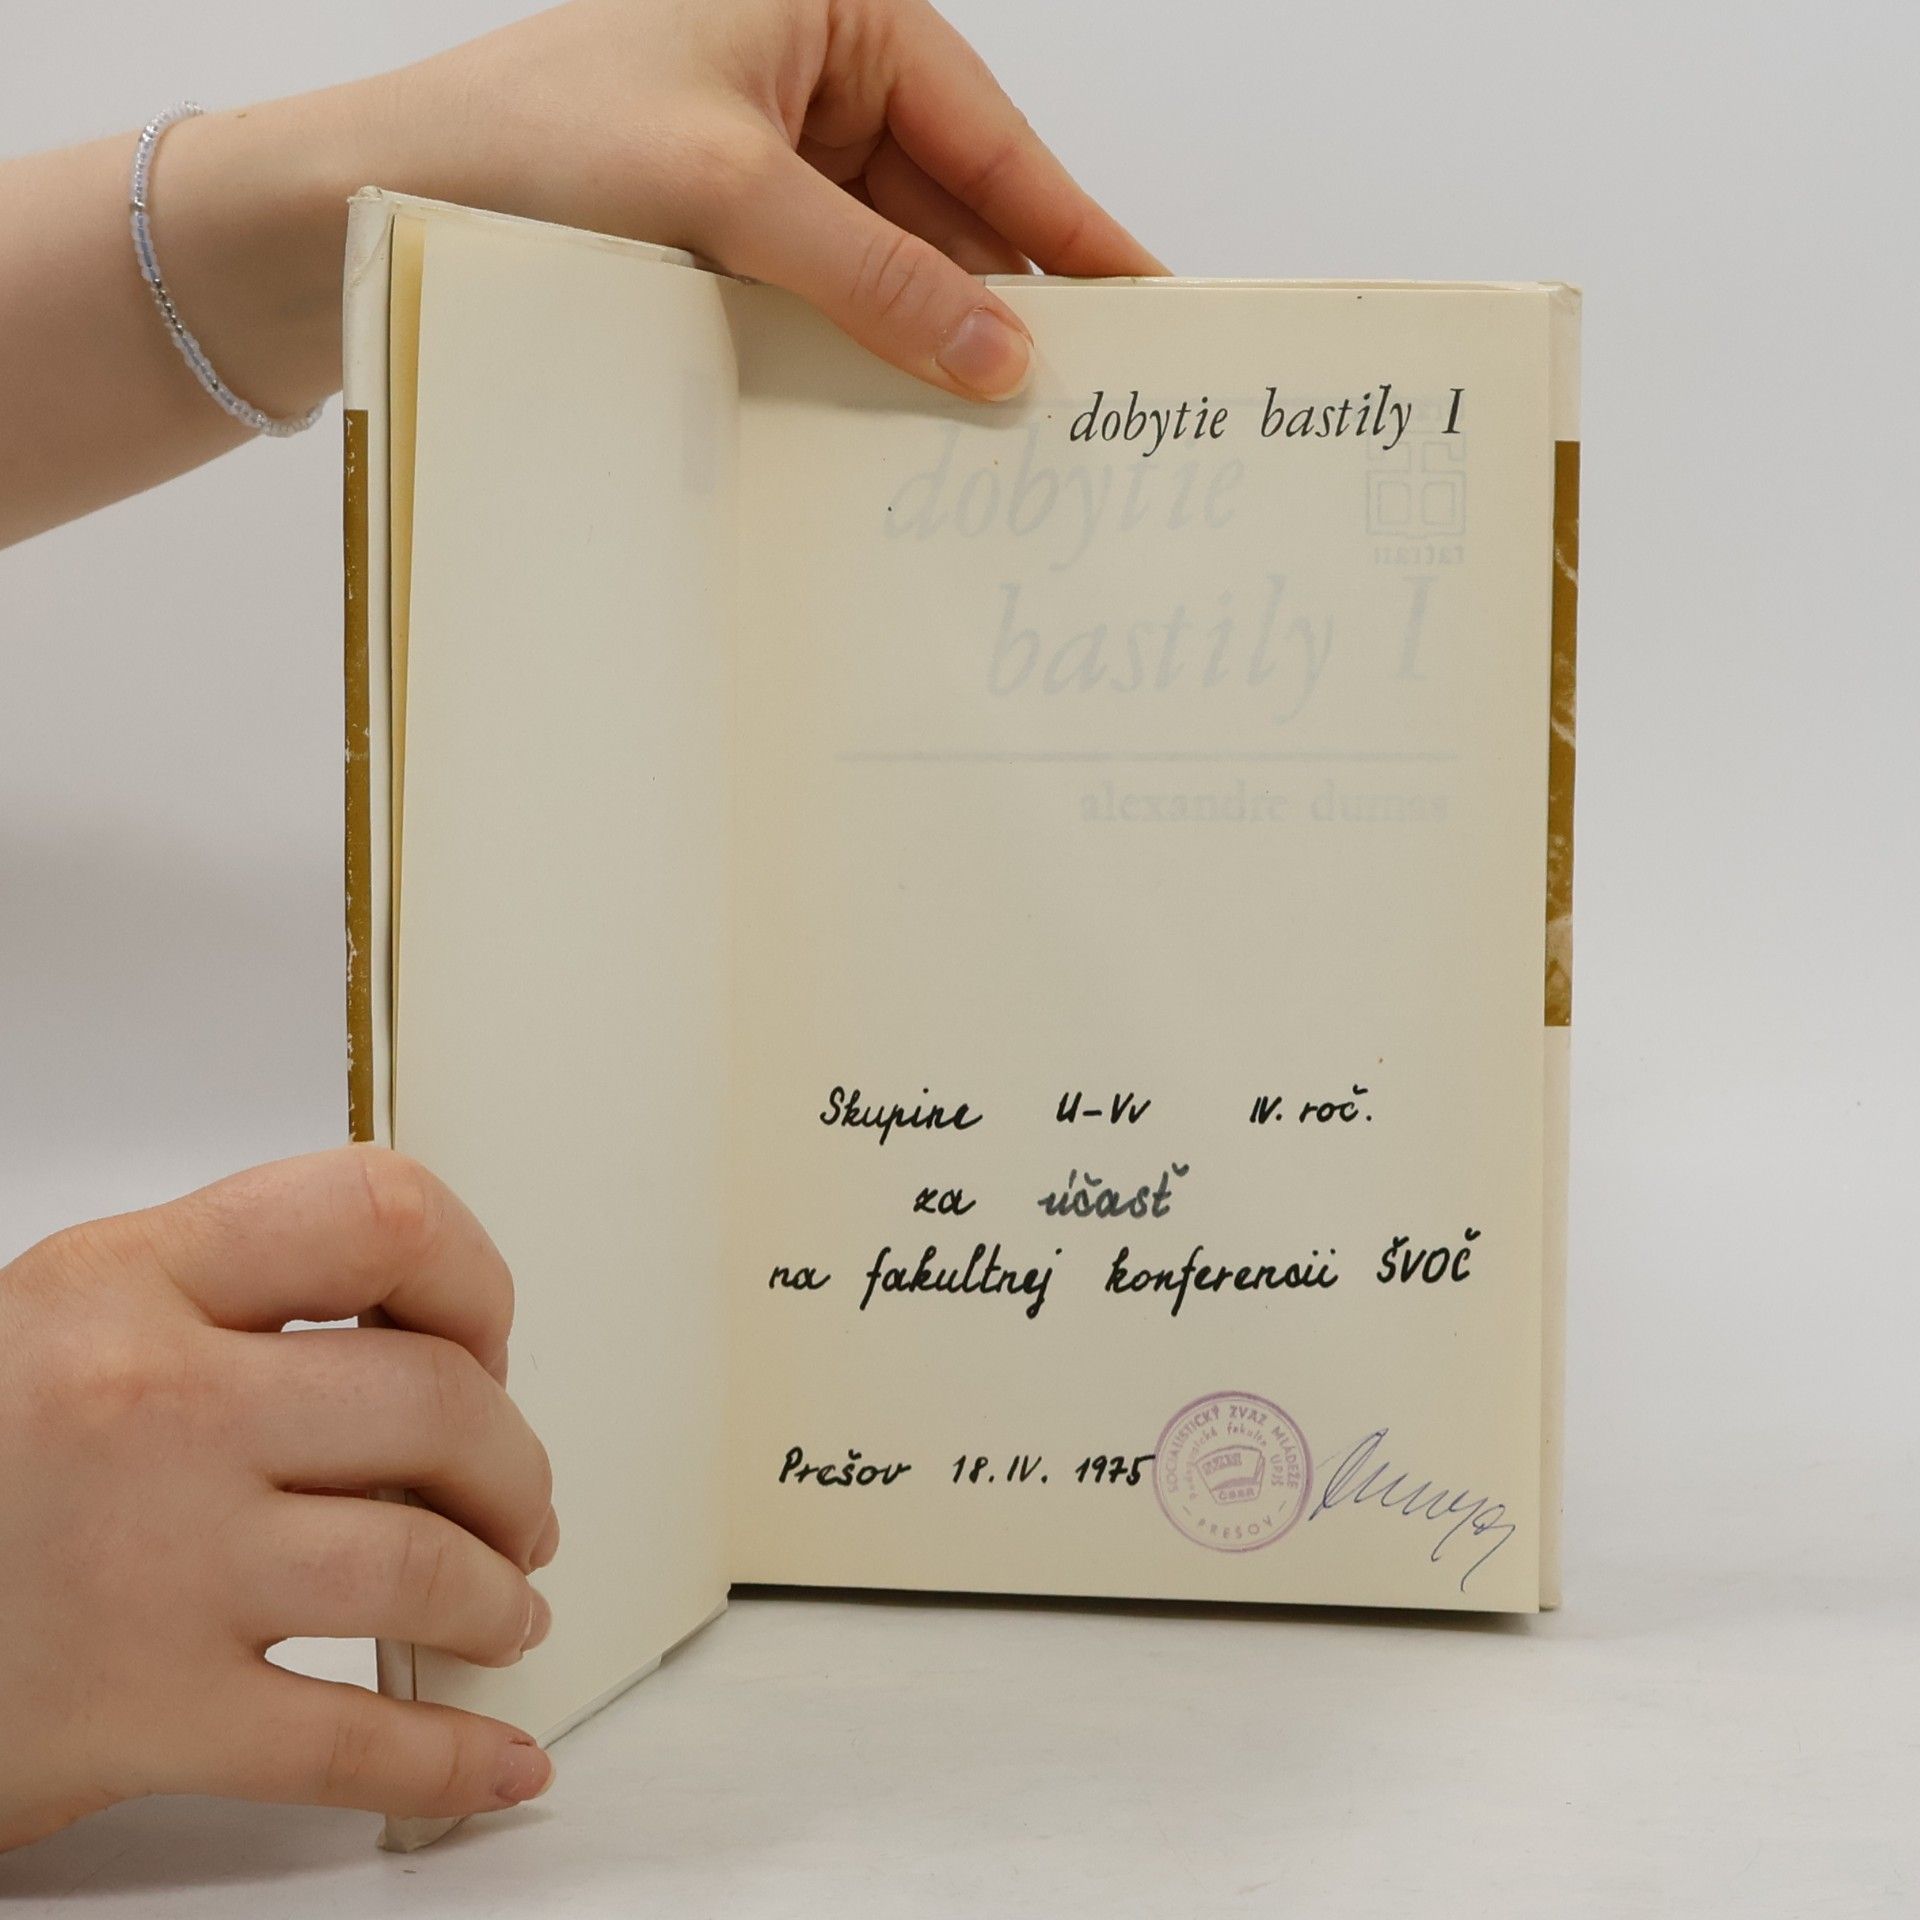 dobytie bastily I
dobytie
bastily I
alexandre dumas
tatran
Skupine U-Vv IV. roč.
za účasť
na fakultnej konferencii ŠVOČ
Prešov 18. IV. 1975
SOCIALISTICKÝ ZVÄZ MLÁDEŽE
Pedagogická fakulta UPJŠ
SZM
ČSSR
- PREŠOV -